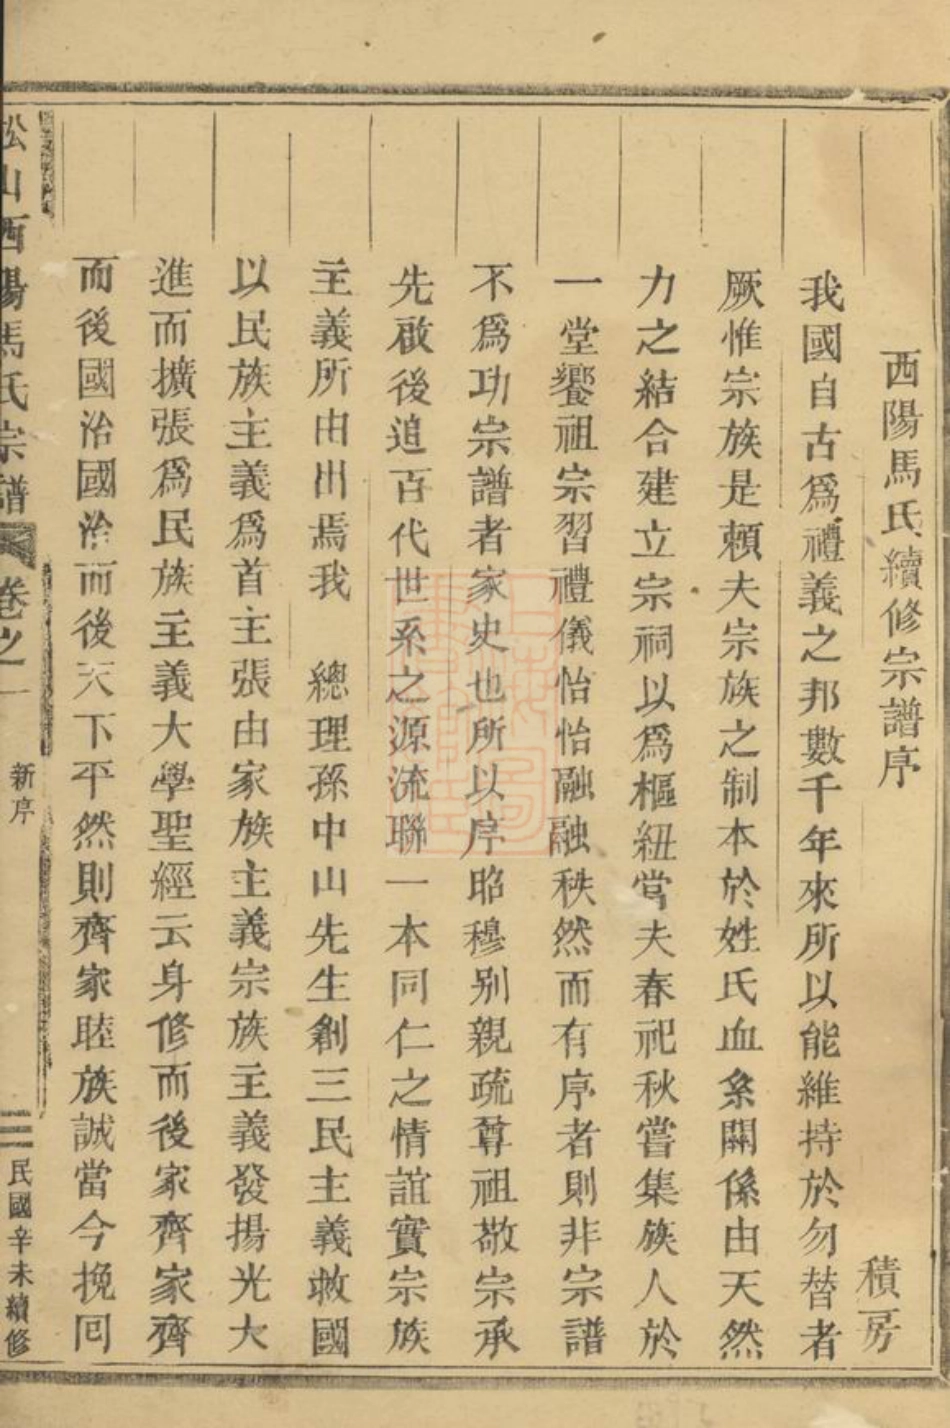 西陽馬氏續修宗譜序
積房
我國自古爲禮義之邦數千年來所以能維持於勿替者
厥惟宗族是賴夫宗族之制本於姓氏血系關係由天然
力之結合建立宗祠以爲樞紐當夫春祀秋嘗集族人於
一堂饗祖宗習禮儀怡怡融融秩然而有序者則非宗譜
不爲功宗譜者家史也所以序昭穆別親疏尊祖敬宗承
先啟後追百代世系之源流聯一本同仁之情誼實宗族
主義所由出焉我 總理孫中山先生創三民主義救國
以民族主義爲首主張由家族主義宗族主義發揚光大
進而擴張爲民族主義大學聖經云身修而後家齊家齊
而後國治國治而後天下平然則齊家睦族誠當今挽回
松山西陽馬氏宗譜
卷之一
新序
三
民國辛未續修